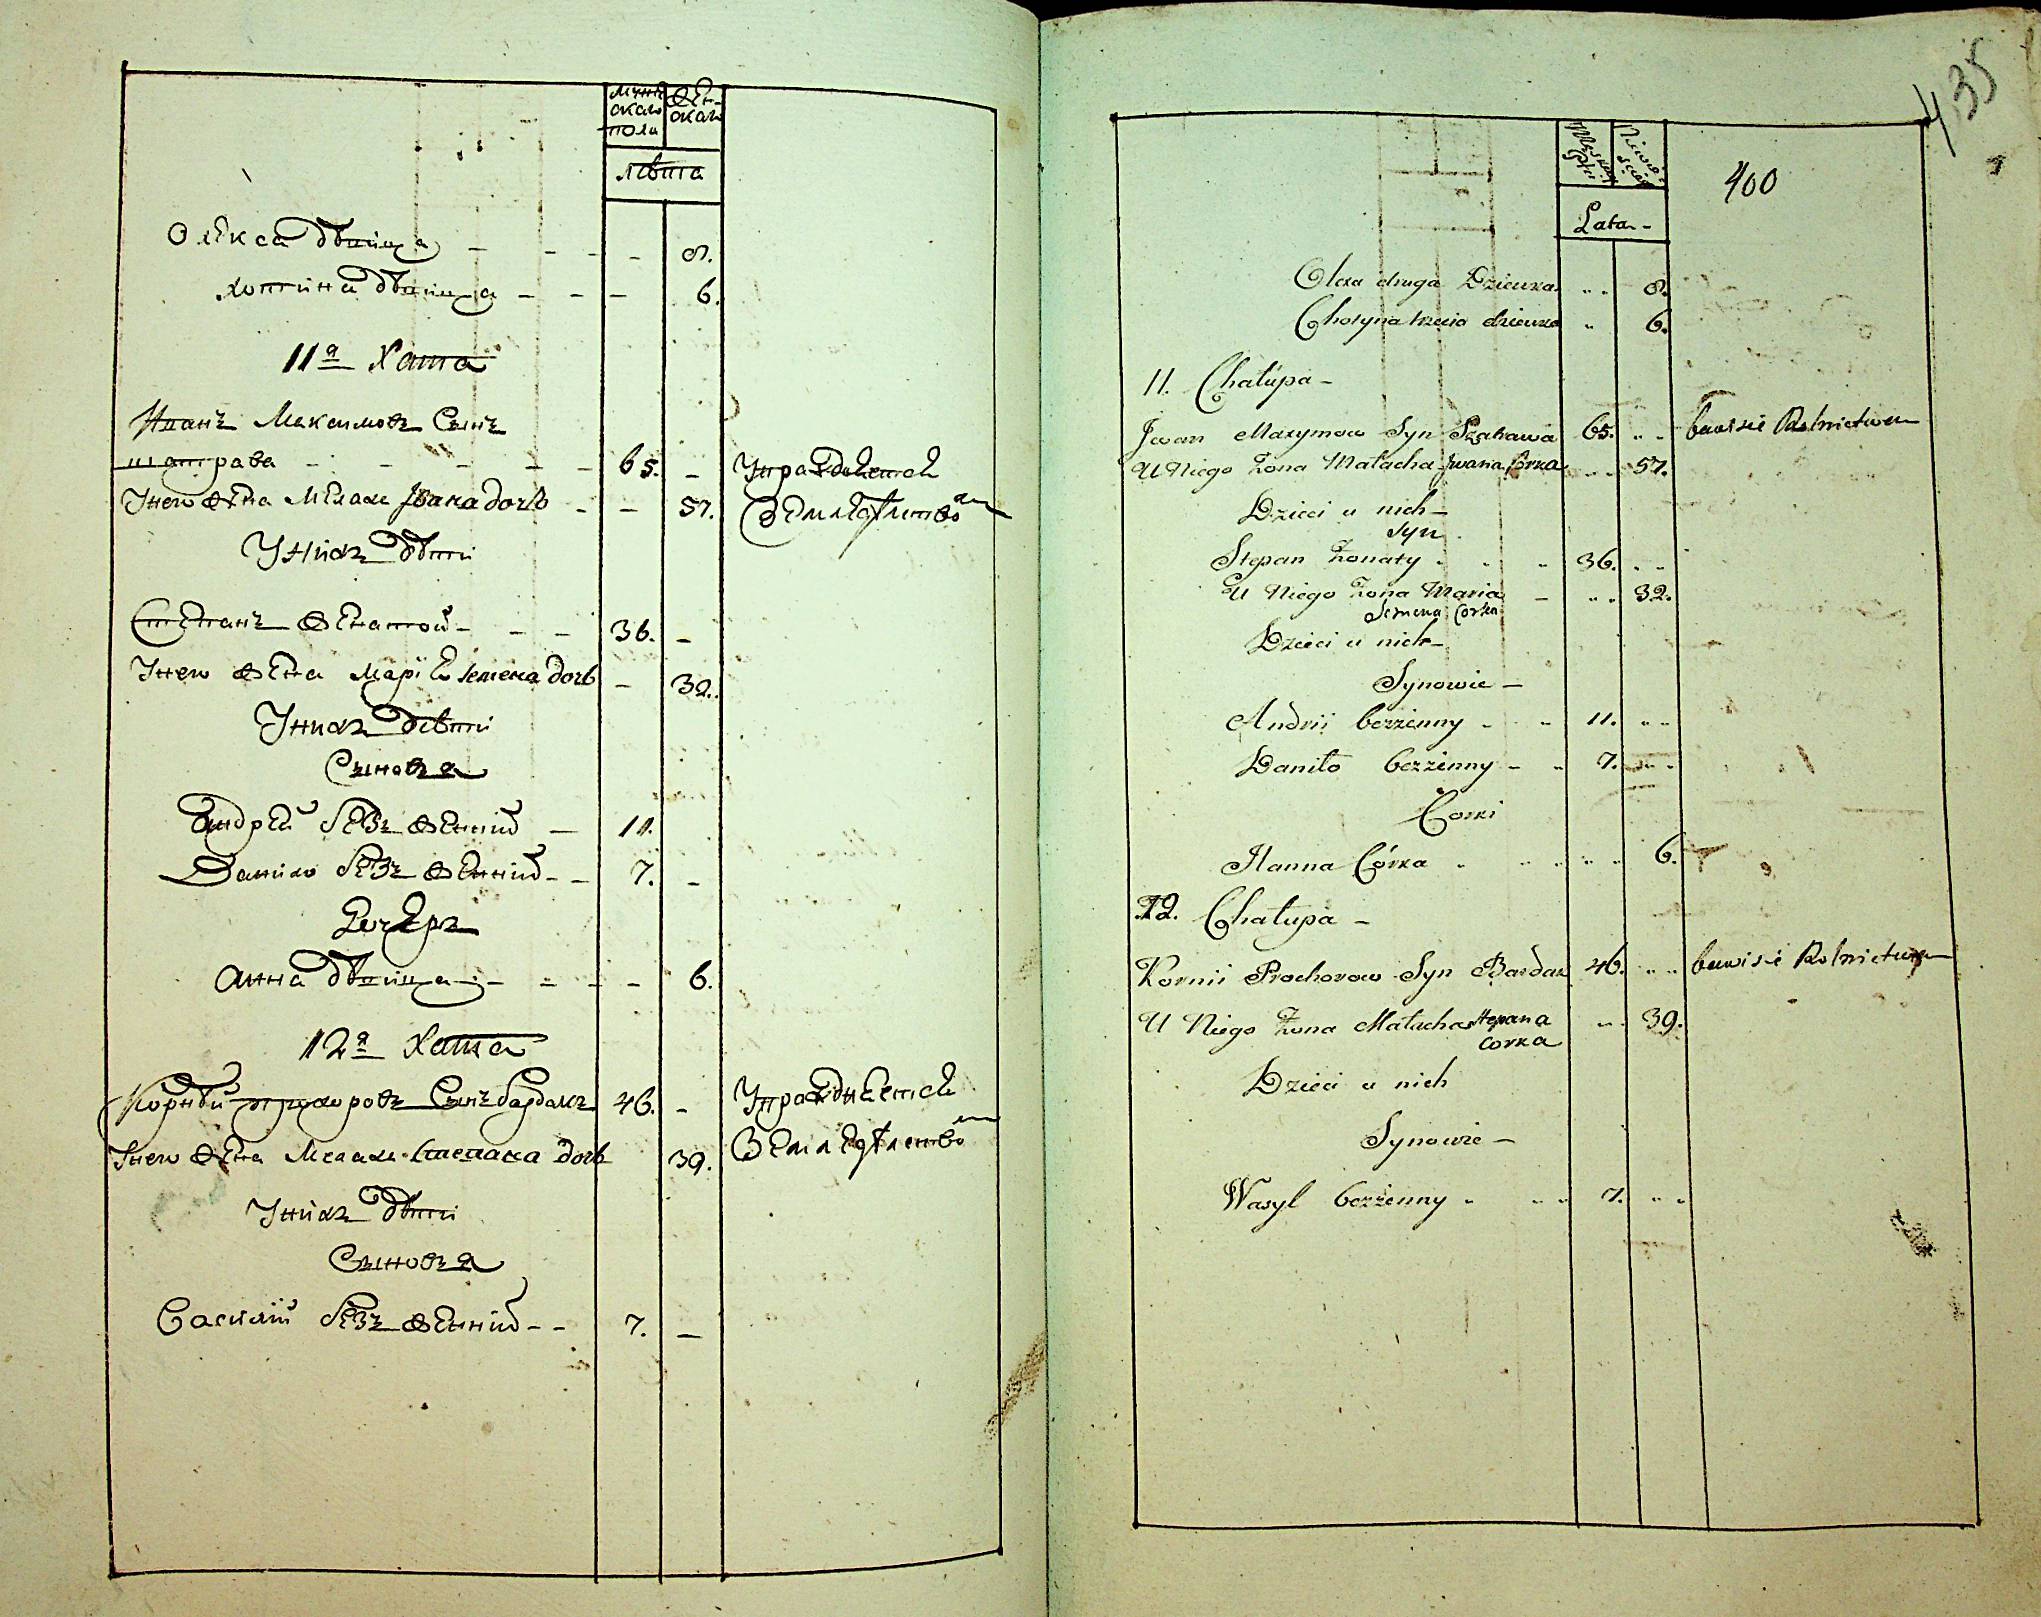 мужескаго пола
женскаго
лѣта
Олекса дѣвица 8.
Хотина дѣвица 6.
11я Хата
Иванъ Максимовъ Сынъ
шатрава 65.
У него жена Мелания Ивана дочь 57.
Упражняется Земледѣлством
У нихъ дѣти
Степанъ женатой 36.
У него жена Марія Семена дочь 32.
У нихъ дѣти
Сыновья
Андрей безженній 11.
Данило безженній 7.
Дочерь
Анна дѣвица 6.
12я Хата
Корнѣй прохоровъ Сынъ бардакъ 46.
У него жена Мелания Степана дочь 39.
Упражняется Земледѣлством
У нихъ дѣти
Сыновья
Василій безженній 7.
435
400
Męskiey Płci
Niewieściey
Lata
Olexa druga Dziewka 8.
Chotyna trzecia dziewka 6.
11. Chałupa
Jwan Maxymow Syn Szatrawa 65. bawi sie Rolnictwem
U Niego Żona Małacha Jwana Corka 57.
Dzieci u nich
Syn
Stepan Żonaty 36.
U Niego Żona Maria 32.
Semena Corka
Dzieci u nich
Synowie
Andrii bezżenny 11.
Daniło bezżenny 7.
Corki
Hanna Córka 6.
12. Chałupa
Kornii Prochorow Syn Bardak 46. bawi sie Rolnictwem
U Niego Żona Małacha Stepana 39.
Corka
Dzieci u nich
Synowie
Wasyl bezżenny 7.